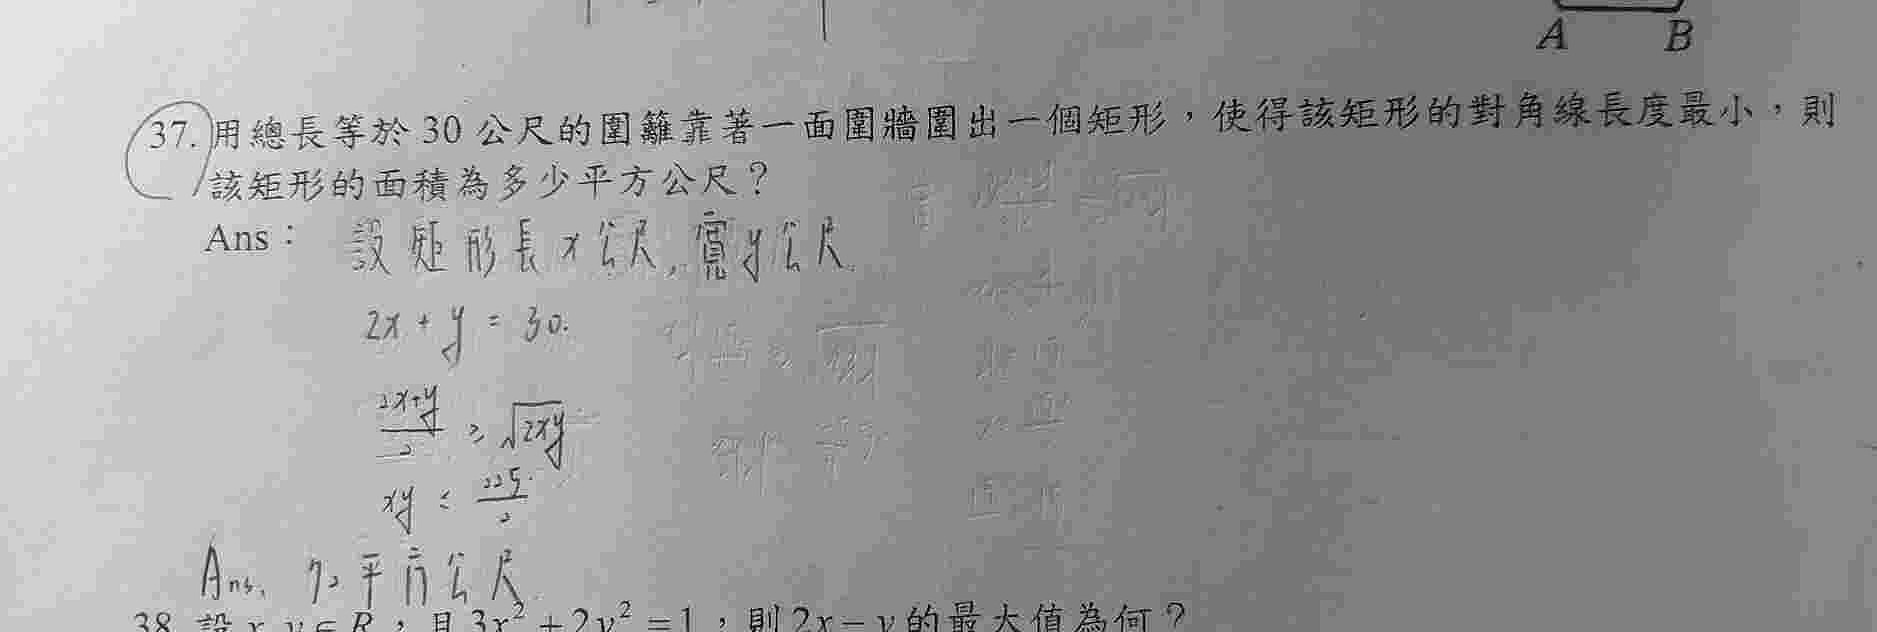 A B
37. 用總長等於 30 公尺的圍籬靠著一面圍牆圍出一個矩形，使得該矩形的對角線長度最小，則
該矩形的面積為多少平方公尺？
Ans： 設矩形長 x 公尺, 寬 y 公尺.
2x + y = 30.
(2x+y)/2 ≥ √(2xy)
xy ≤ 225/2
Ans. 72 平方公尺
38. 設 x, y ∈ R，且 3x² + 2y² = 1，則 2x − y 的最大值為何？